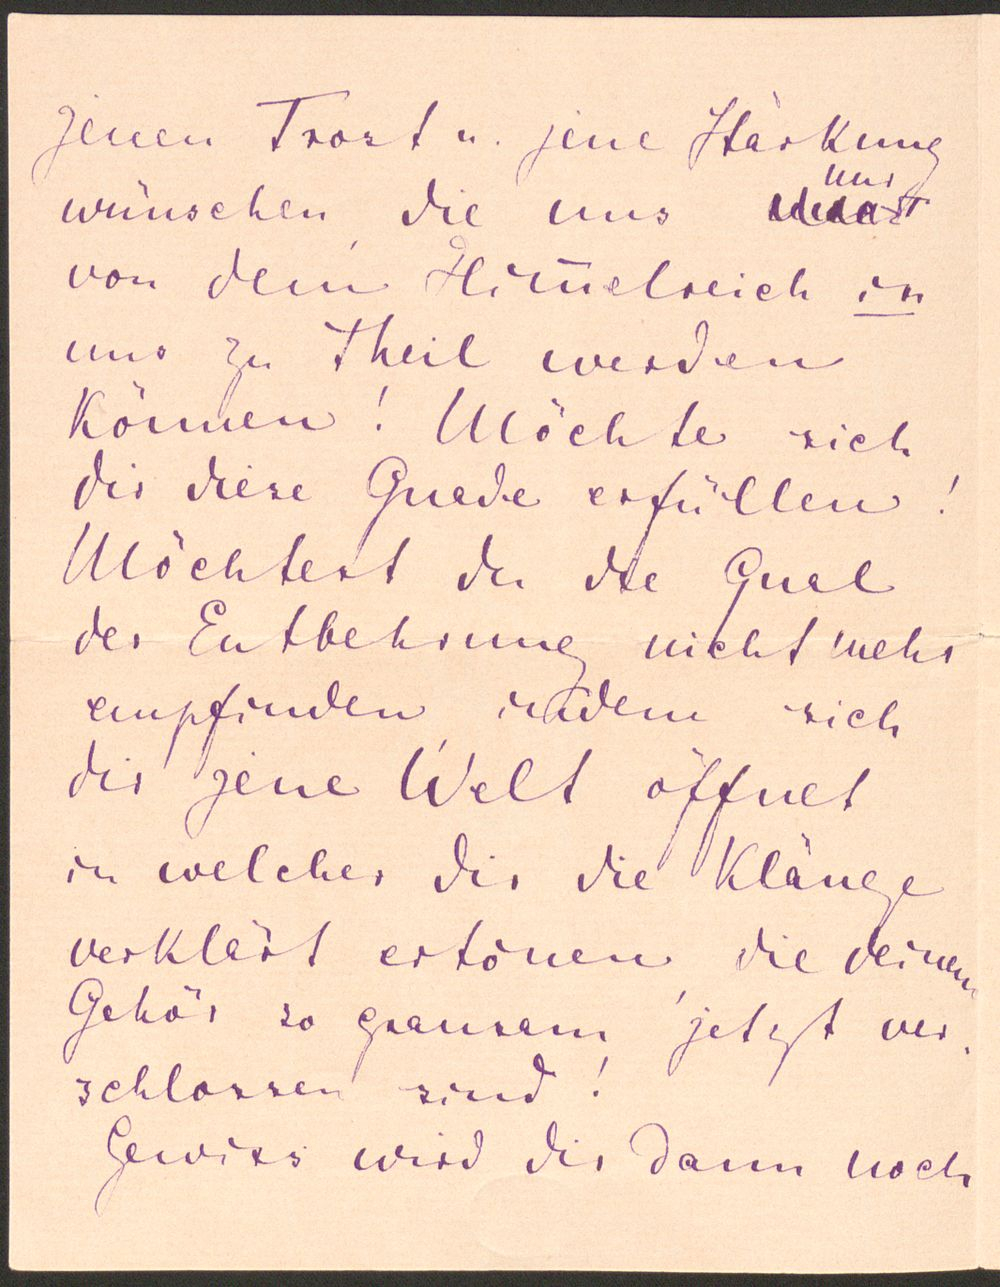 jenen Trost u. jene Stärkung
wünschen die uns nur
von dem Him̅elreich in
uns zu Theil werden
können! Möchte sich
dir diese Gnade erfüllen!
Möchtest du die Qual
der Entbehrung nicht mehr
empfinden indem sich
dir jene Welt öffnet
in welcher dir die Klänge
verklärt ertönen die deinem
Gehör so grausam jetzt ver-
schlossen sind!
Gewiss wird dir dann noch